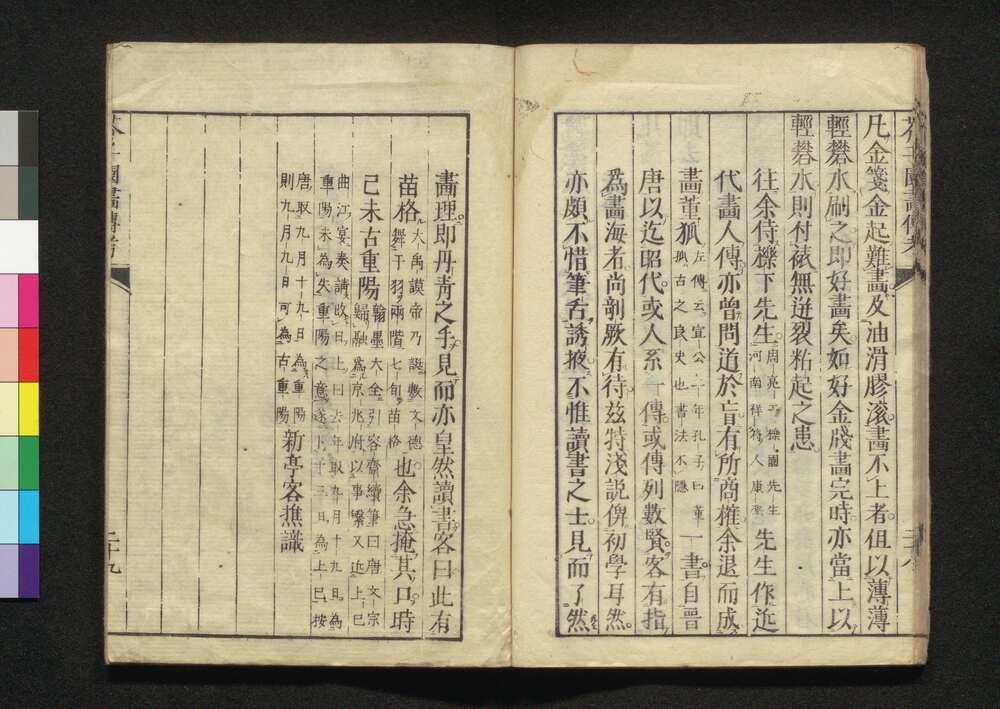 芥子園畫傳考
二十八
凡金箋金起難畫及油滑膠滚畫不上者但以薄薄
輕礬水刷之即好畫矣如好金牋畫完時亦當上以
輕礬水則付裱無迸裂粘起之患
徃余侍櫟下先生周亮工櫟園先生河南祥符人康凞先生作近
代畫人傳亦曾問道於盲有所商榷余退而成
畫董狐左傳云宣公二年孔子曰董狐古之良史也書法不隱一書自晉
唐以迄昭代或人系一傳或傳列數賢客有指
為畫海者尚剞厥有待茲特淺説俾初學耳然
亦頗不惜筆舌誘掖不惟讀書之士見而了然
畫理即丹青之手見而亦皇然讀書客曰此有
苗格大禹謨帝乃誕敷文德舞干羽兩階七旬苗格也余急掩其口時
己未古重陽翰墨大全引容齋續筆曰唐文宗歸融為京兆府以事繁又近上巳
曲江宴奏請改日上曰去年取九月十九日為
重陽未為失重陽之意遂下十三日為上巳按
唐取九月十九日為重陽則九月九日可為古重陽新亭客樵識
芥子園畫傳考
二十九